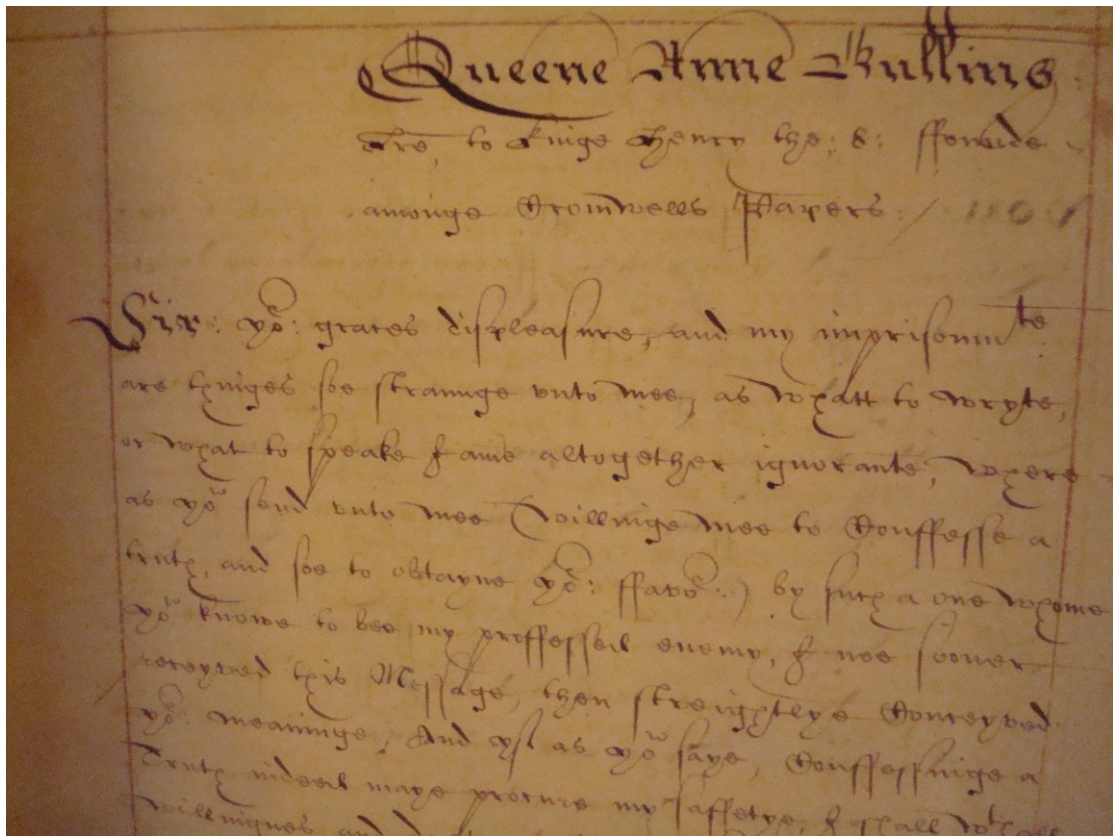 Queene Anne Bullins
lre, to Kinge Henry the: 8: ffounde
amonge Cromwells Papers /
Sir: yor: graces displeasure, and my imprisonmte
are thinges soe straunge vnto mee, as whatt to wryte,
or what to speake I ame altogether ignorante; where
as you send vnto mee (willinge mee to Conffesse a
truth, and soe to obtayne yor: ffavor:) by such a one whome
you knowe to bee my proffessed enemy, I noe sooner
receyved this Message, then streightlye Conceyved
yor: meaninge; And yf as you saye, Conffessinge a
Truth indeed maye procure my saffetye, I shall wth
willingnes and